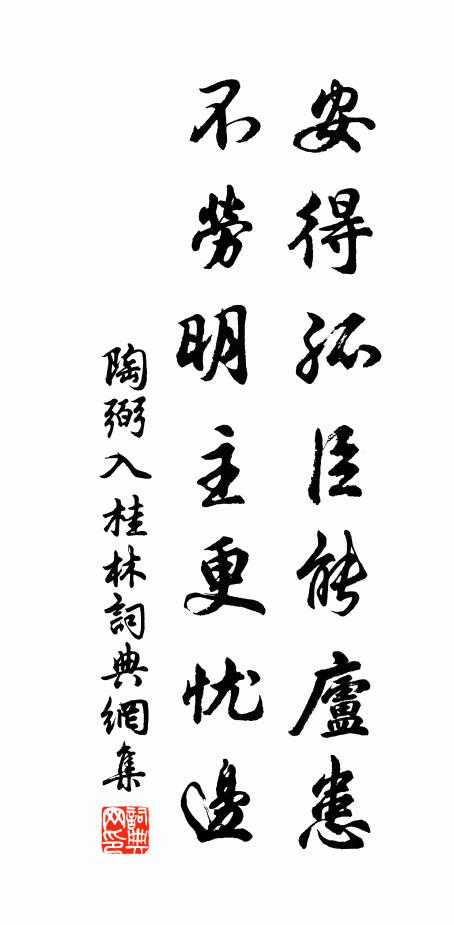 安得孤臣能廬患
不勞明主更忧邊
陶弼入桂林詞典網集
詞典網印